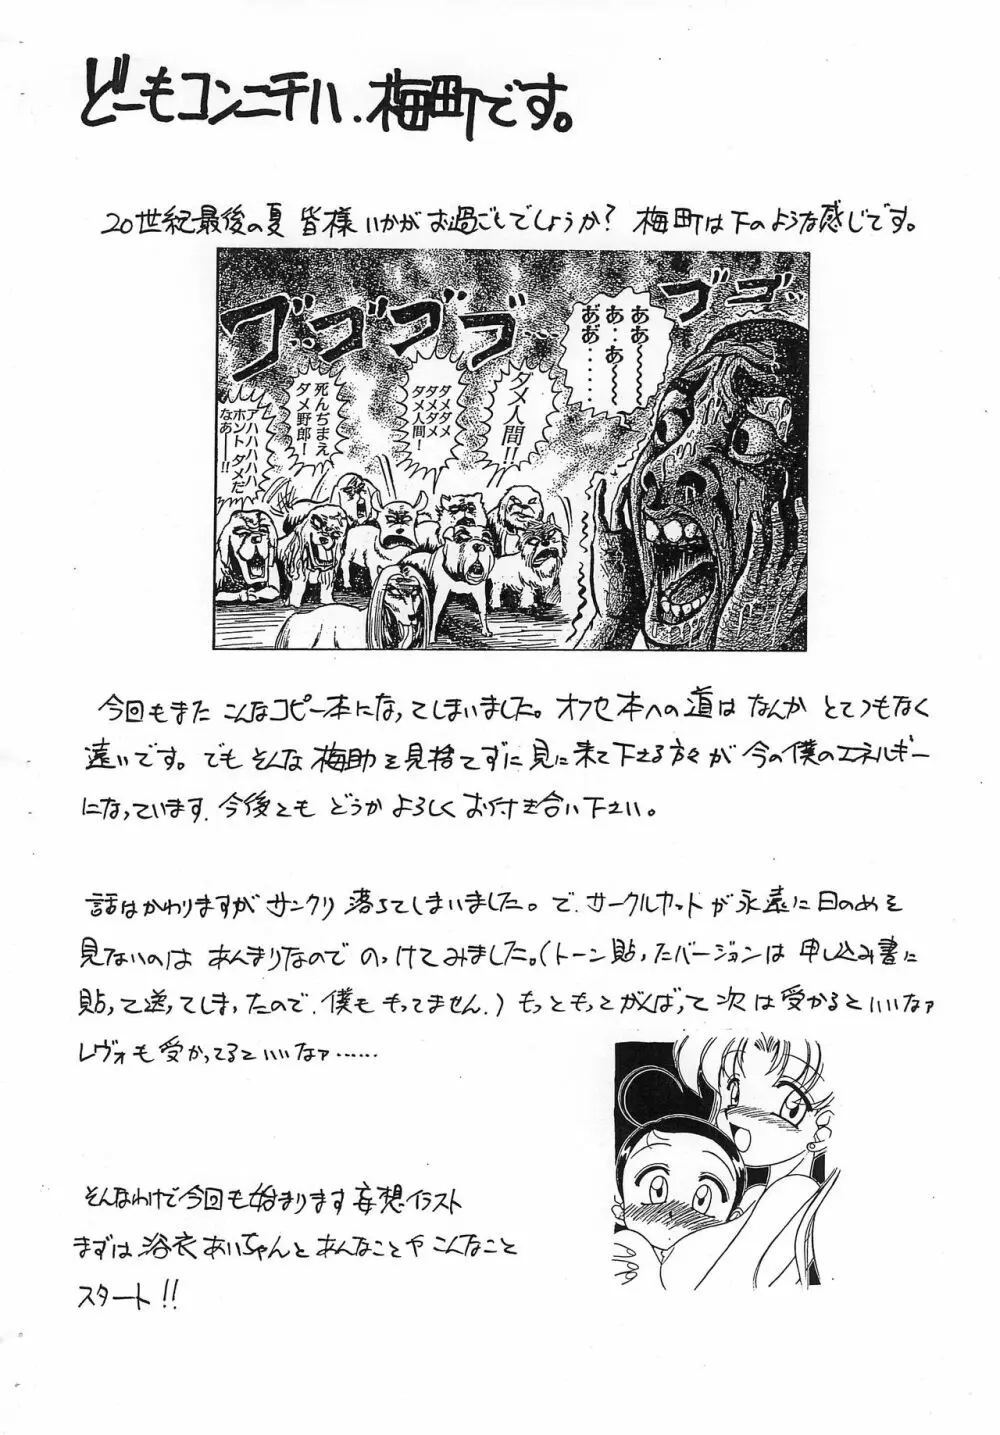 どーもコンニチハ、梅町です。
20世紀最後の夏 皆様いかがお過ごしでしょうか? 梅町は下のような感じです。
ゴゴ…
ああ〜〜
あ…あ〜〜
あ゛あ゛……
ゴゴゴゴ
ダメ人間!!
ダメダメ
ダメダメ
ダメ人間!
死んちまえ
ダメ野郎!
アハハハハハ
ホントダメだ
なあ──!!
今回もまた こんなコピー本になってしまいました。オフセ本への道は なんか とてつもなく
遠いです。でも そんな 梅助を見捨てずに見に来て下さる方々が 今の僕のエネルギー
になっています。今後とも どうか よろしく お付き合い下さい。
話はかわりますが サンクリ 落ちてしまいました。で、サークルカットが永遠に日のめを
見ないのは あんまりなので のっけてみました。(トーン貼ったバージョンは 申し込み書に
貼って送ってしまったので、僕も もってません。) もっともっとがんばって 次は受かるといいなァ
レヴォも受かってるといいなァ……
そんなわけで今回も始まります妄想イラスト
まずは 浴衣あいちゃんと あんなことや こんなこと
スタート!!